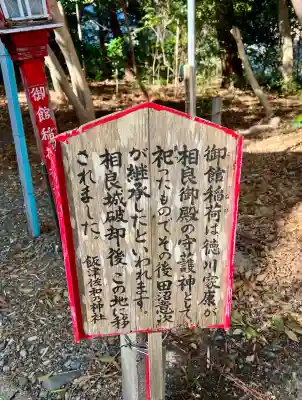 御館稲荷は徳川家康が
相良御殿の守護神として
祀ったもので、その後田沼意次
が継承したといわれます。
相良城破却後、この地に移
されました。
飯津佐和乃神社
御館稲